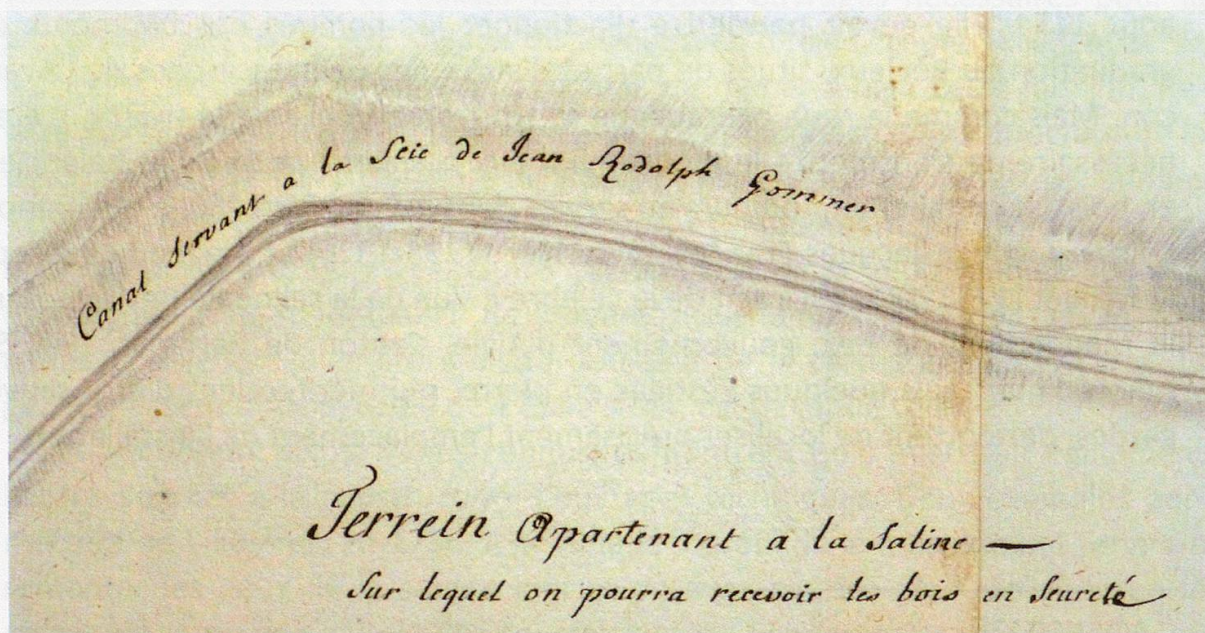 Canal Servant a la Scie de Jean Rodolph Gommer
Terrein Apartenant a la Saline —
Sur lequel on pourra recevoir les bois en Seureté